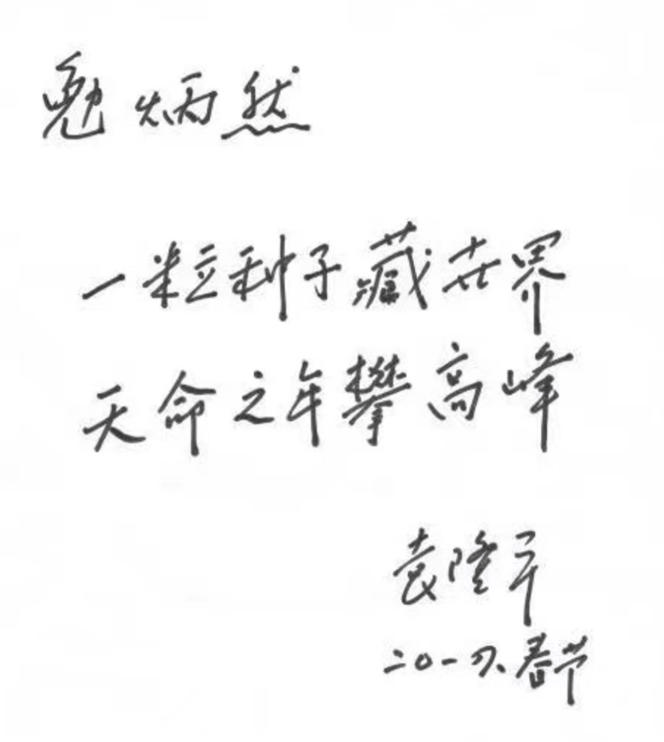 勉炳然
一粒种子藏世界
天命之年攀高峰
袁隆平
二0一九.春节